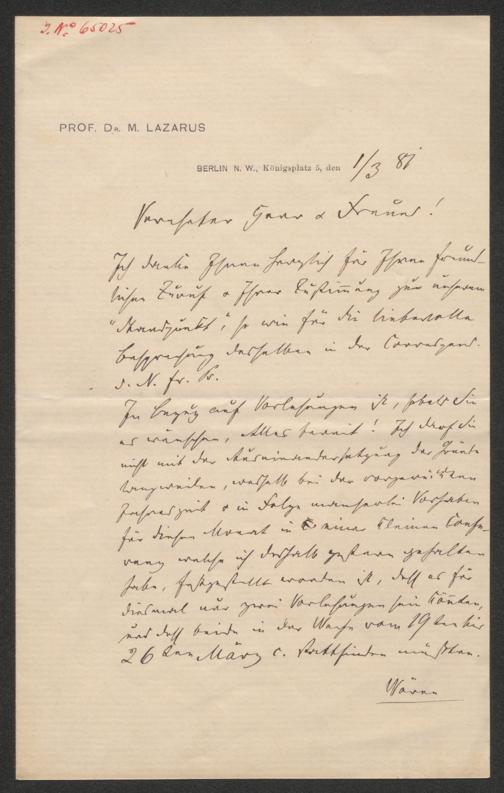 J. No 65025
PROF. DR. M. LAZARUS
BERLIN N. W., Königsplatz 5, den 1/3 81
Verehrter Herr & Freund!
Ich danke Ihnen herzlich für Ihren freund-
lichen Zuruf & Ihre Zustimmung zum unserem
"Standpunkt", so wie für die liebevolle
Besprechung desselben in der Correspond.
d. N. fr. Pr.
In Bezug auf Vorlesungen ist, sobald Sie
es wünschen, Alles bereit! Ich darf Sie
nicht mit der Auseinandersetzung der Gründe
langweilen, weshalb bei der vorgerückten
Jahreszeit & in Folge mancherlei Vorhaben
für diesen Monat in einer kleinen Confe-
renz welche ich deshalb gestern gehalten
habe, festgestellt worden ist, daß es für
diesmal nur zwei Vorlesungen sein könnten,
und daß beide in der Woche vom 19ten bis
26ten März c. stattfinden müßten.
Wären